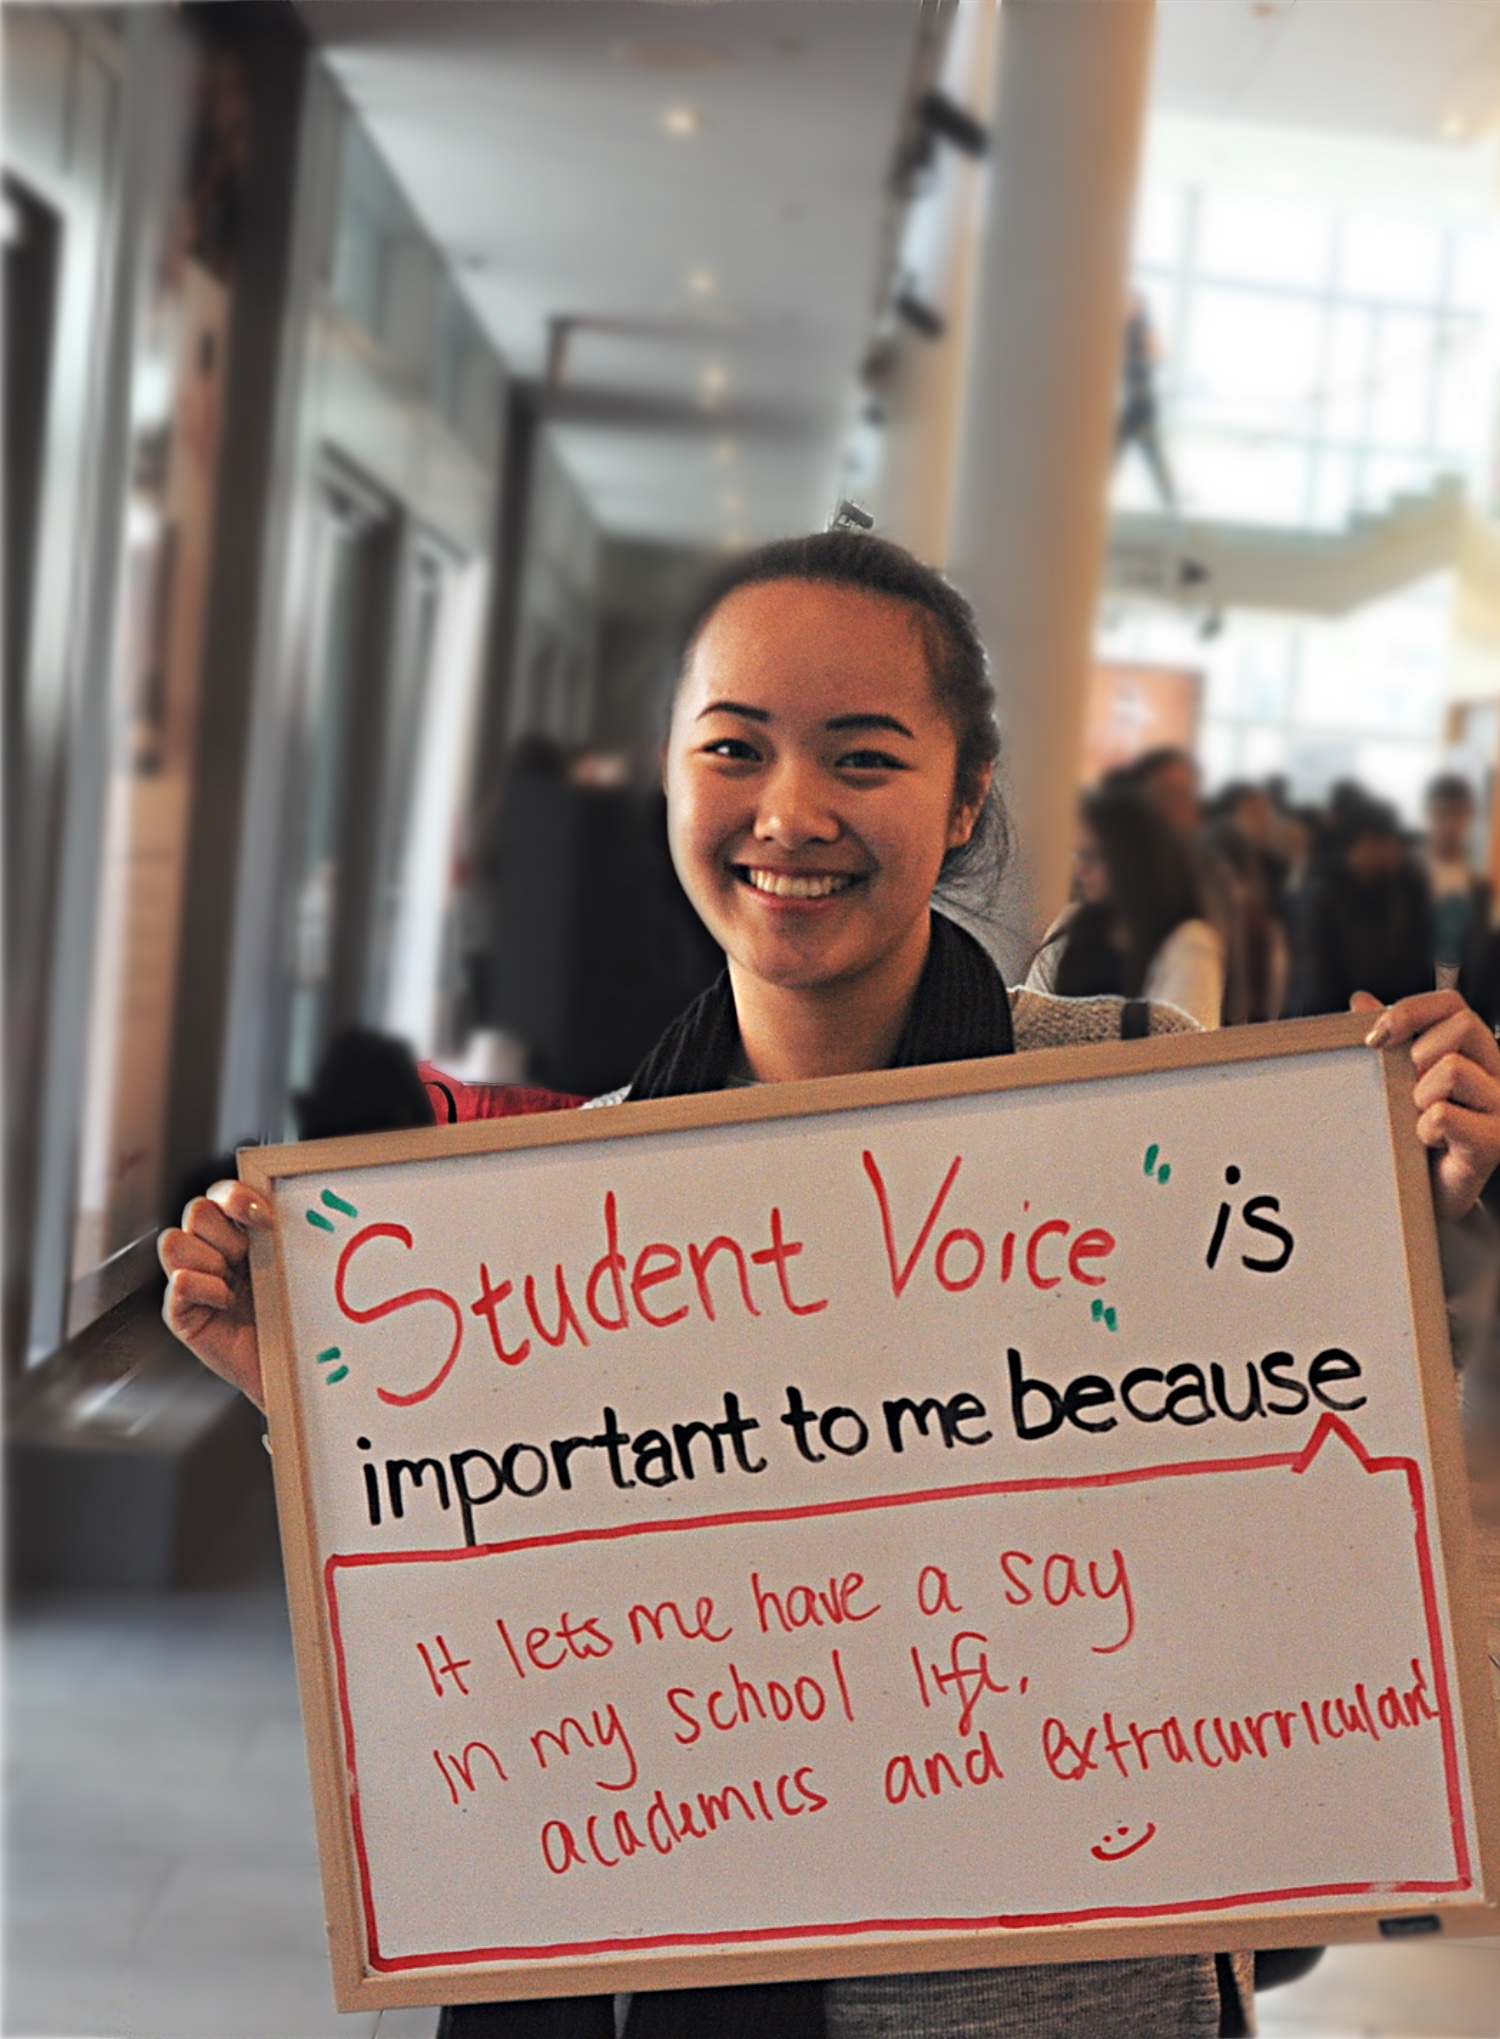 "Student Voice" is
important to me because
It lets me have a say
in my school life,
academics and extracurricular!